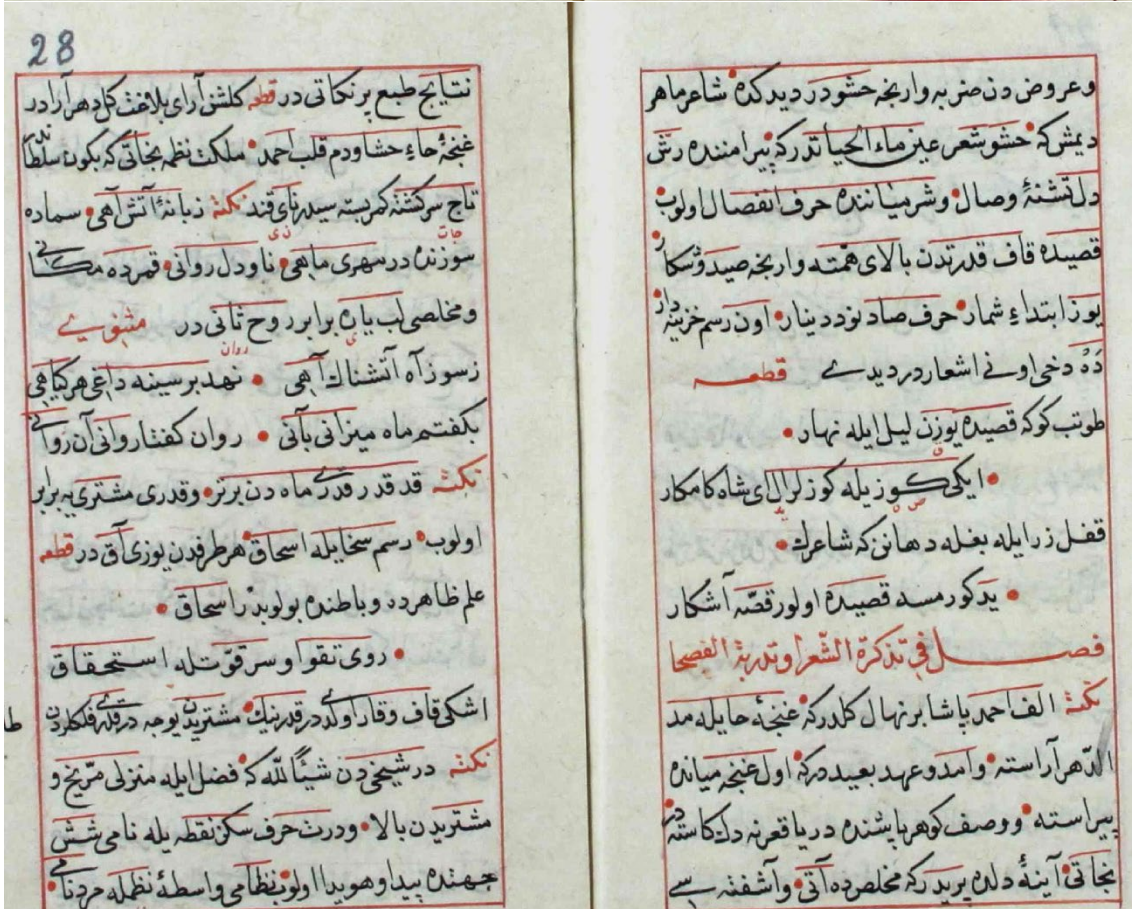 وعروض دن ضربه وارنجه حشودر ديدكده شاعر ماهر
ديمش كه حشو شعر عين ماء الحياتدر كه پيرامننده رش
دل تشنهٔ وصال وشرميانند‌ه حرف انفصال اولوب
قصيده قاف قدرتدن بالاى همته وارنجه صيد وشكار
يوز ابتداء شمار حرف صاد نود دينار اون رسم خزينه‌دار
ده دخى اونے اشعار در ديدے قطعه
طوتب كوكه قصيده يوزن ليل ايله نهار
ايكى كوزيله كوزلرلر اى شاه كامكار
قفل زرايله بغله دهانن كه شاعرك
يدكورمسه قصيده اولور قصّه آشكار
فصل فى تذكرة الشّعرا وتدربة الفصحا
نكته الف احمد پاشا بر نهال كلدر كه غنچهٔ حايله مد
الدّهر آراسته وامد وعهد بعيد در كه اول غنچه ميانده
پيراسته ووصف كوهر پاشنده دريا قعرنه دك كاسته‌در
نجاتى آينهٔ دلده بريدر كه مخلصده آتى وآشفته سے
28
نتايج طبع پر نكاتى در قطعه كلشن آراى بلاغت كل دهرآرادر
غنچهٔ حاء حشاودم قلب احمد ملكت نظمه نجاتى كه بكون سلطاندر
تاج سركشنه كمر بسته سيدر ناى قند نكته زبانهٔ آتش آهى سماده
سوزنده در سهرى ماهى ناودل روانى قمرده مكانے
ومخلصى لب ياره برابر روح ثانى در مثنوے
زسوز آه آتشناك آهى نهد بر سينه داغى هر كياهى
بكفتم ماه ميزانى بآنى روان كفتا روانى آن روانے
نكته قد قدر قدرے ماه دن برتر وقدرى مشترى يه برابر
اولوب رسم سخايله اسحاق هر طرفدن يوزى آق در قطعه
علم ظاهرد‌ه وباطنده بولوبدر اسحاق
روى تقوا وسر قوّتله استحقاق
اشكى قاف وقار اولدے در قدرينك مشتريدن يوجه در قدرے فلكلردن
نكته در شيخى دن شيئًا لله كه فضل ايله منزلى مرّيخ و
مشتريدن بالا ودرت حرف سكز نقطه يله نامى شش
جهتنده پيدا وهويدا اولوب نظامى واسطهٔ نظمله مرد نامے